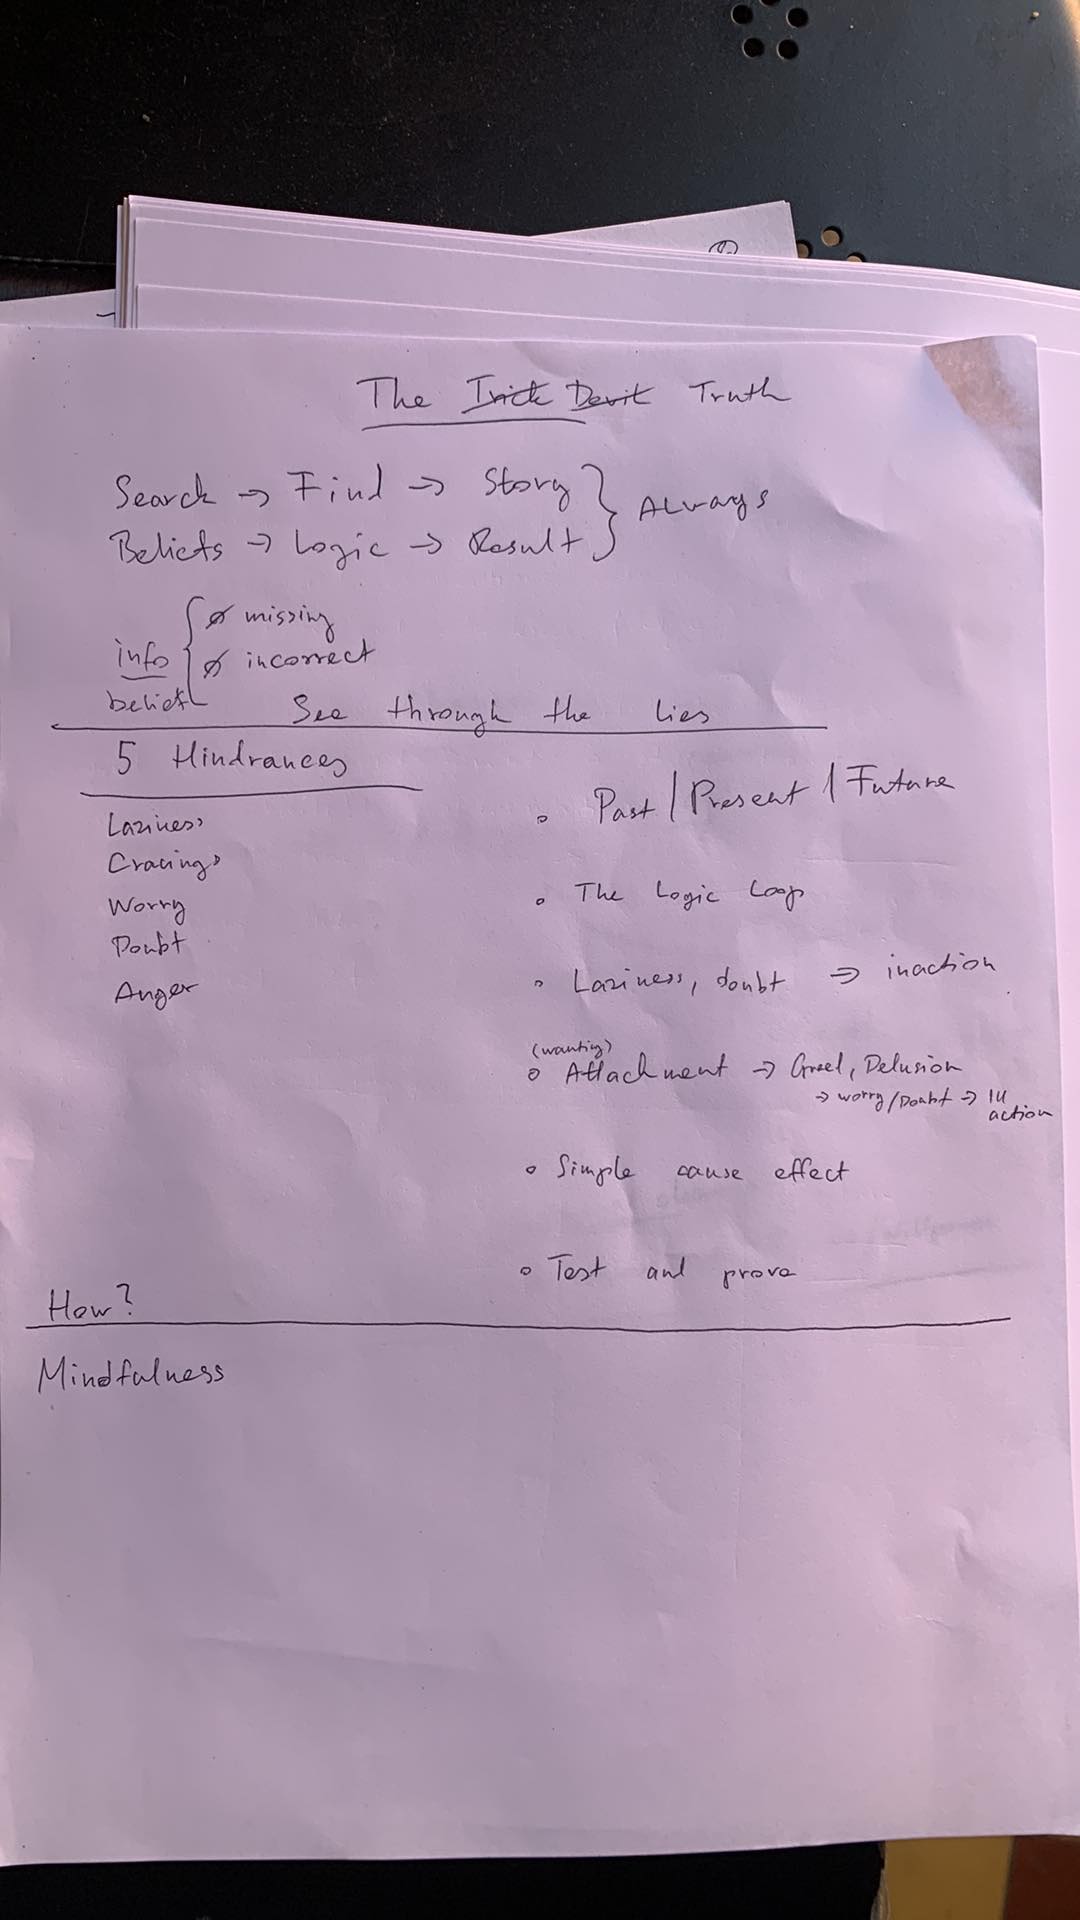 The Trick Devil Truth
Search → Find → Story } Always
Beliefs → Logic → Result
info { ∅ missing
∅ incorrect
belief
See through the lies
5 Hindrances
Laziness
Cravings
Worry
Doubt
Anger
∘ Past / Present / Future
∘ The Logic Loop
∘ Laziness, doubt ⇒ inaction
(wanting)
∘ Attachment → Greed, Delusion
→ worry/Doubt → in
action
∘ Simple cause effect
∘ Test and prove
How?
Mindfulness